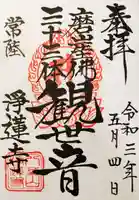 奉拝
令和三年
五月四日
磨崖佛
三十三体
観世音
常陸
浄蓮寺